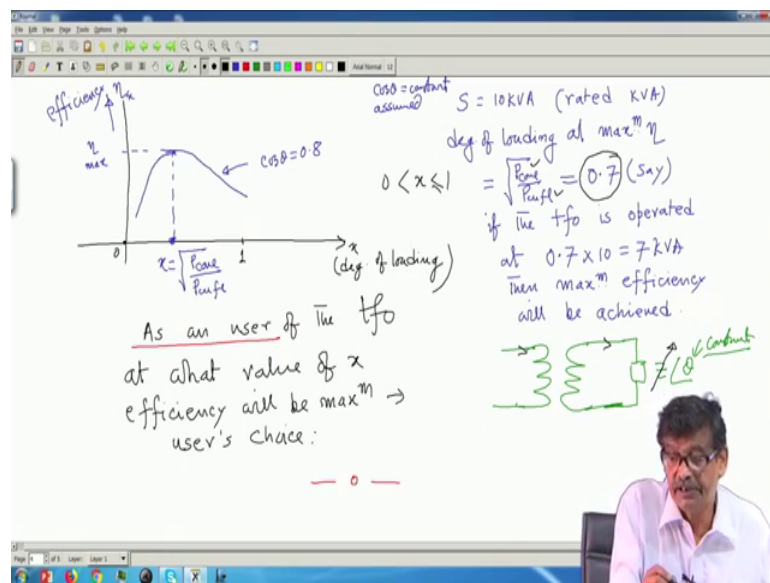 Journal
File Edit View Page Tools Options Help
Arial Normal 12
efficiency η
η
max
cosθ = 0.8
0
1
x
(deg. of loading)
x = √(Pcore/Pcufl)
0 < x ≤ 1
cosθ = constant
assumed
S = 10 KVA (rated KVA)
deg of loading at maxᵐ η
= √(Pcore/Pcufl) = 0.7 (say)
if The tfo is operated
at 0.7 x 10 = 7 KVA
Then maxᵐ efficiency
will be achieved.
constant
θ
As an user of The tfo
at what value of x
efficiency will be maxᵐ →
user's choice:
— 0 —
Page 4 of 5 Layer: Layer 1